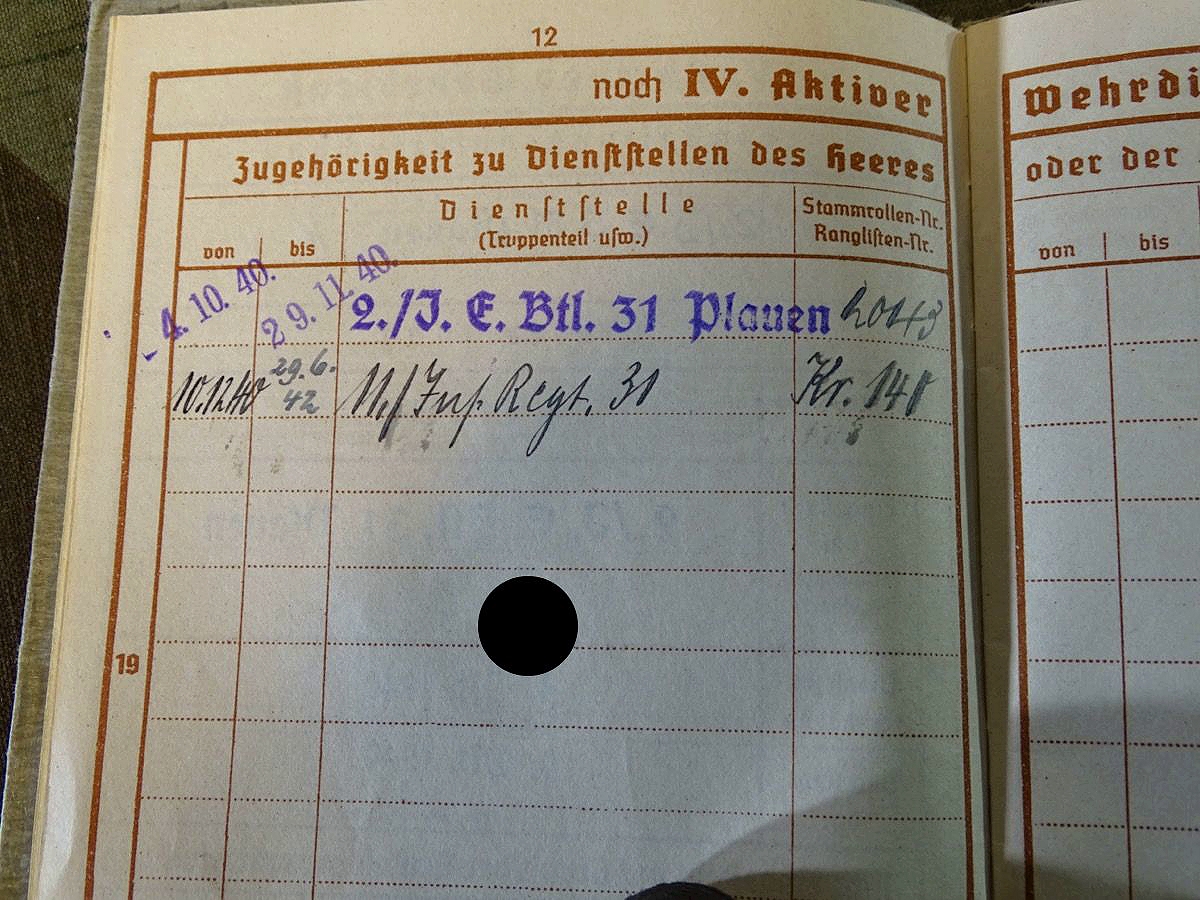 12
noch IV. Aktiver
Wehrdi
Zugehörigkeit zu Dienststellen des Heeres
oder der
von bis Dienststelle (Truppenteil usw.) Stammrollen-Nr. Ranglisten-Nr.
von bis
4. 10. 40. 29. 11. 40. 2./I. E. Btl. 31 Plauen 20143
10.12.40 29.6.42 11./Inf. Regt. 31 Kr. 140
19